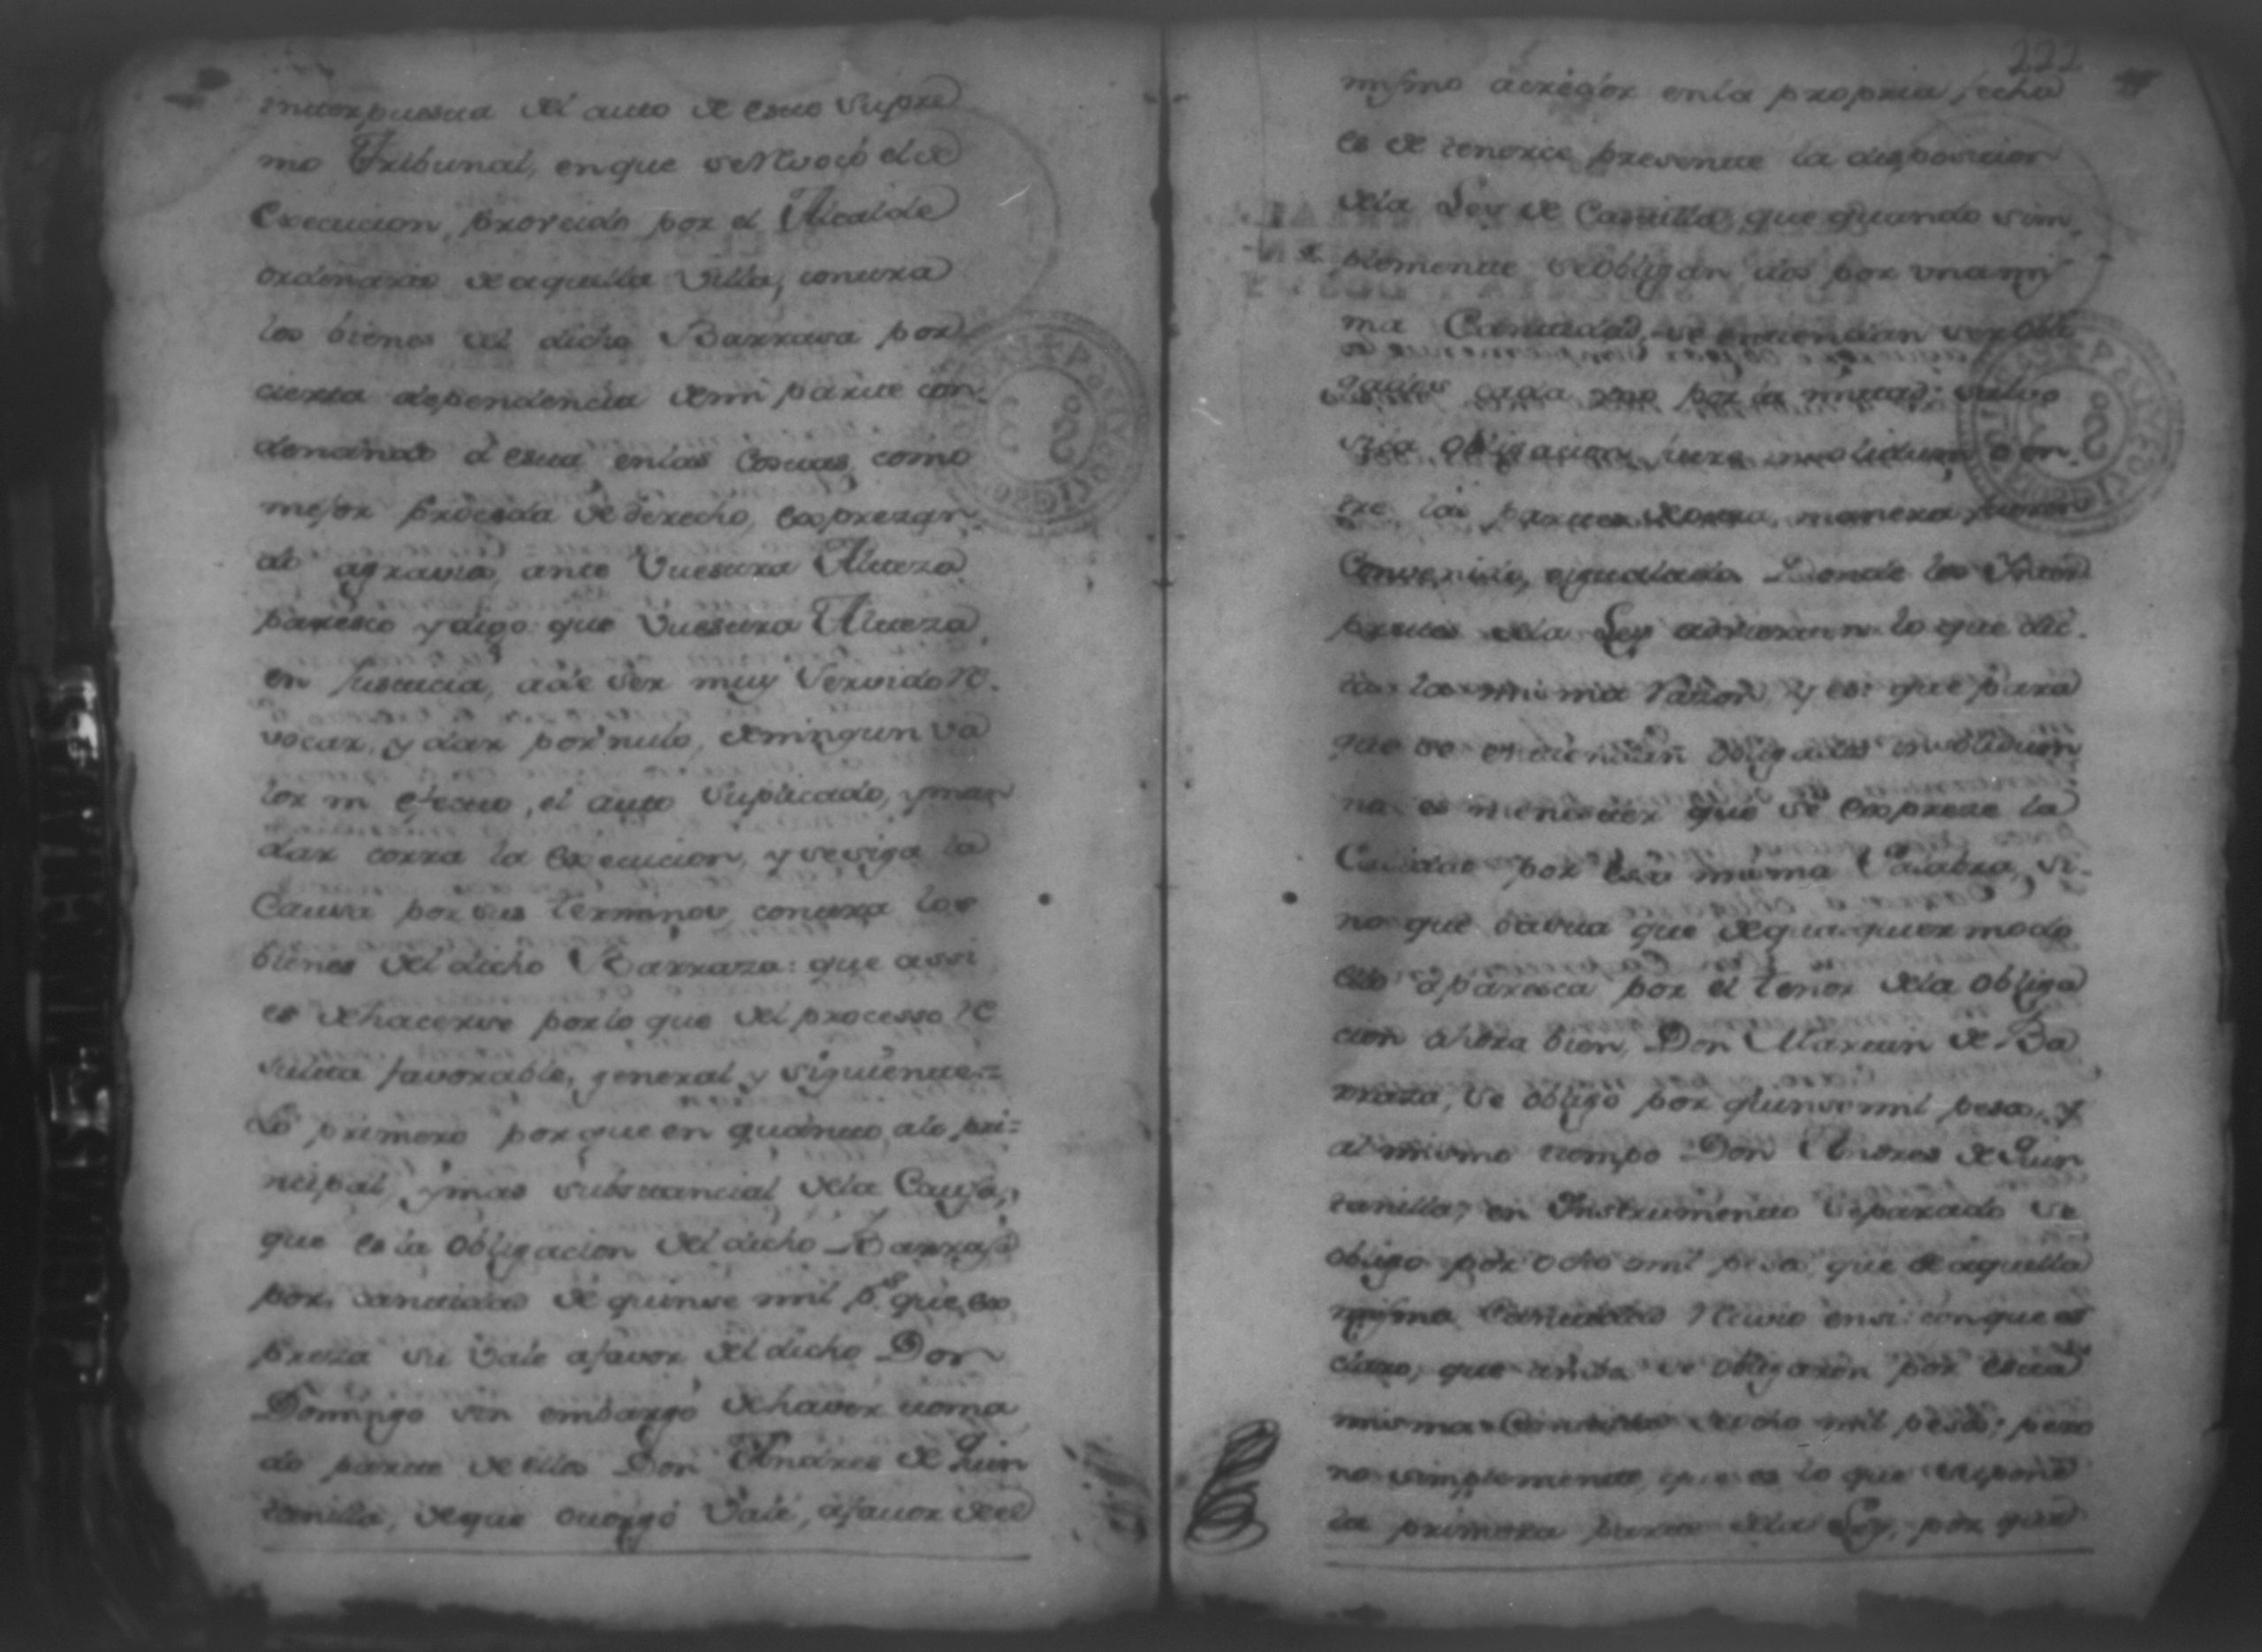 interpuesta del auto de esste supre
mo Tribunal, en que se Revocó el de
Execucion, proveido por el Alcalde
ordinario de aquella Villa, contra
los bienes del dicho Barrasa por
cierta dependencia de mi parte con-
denando á esta en las Costas, como
mejor proceda de derecho, expresan
do agravios, ante Vuestra Alteza
paresco y digo: que Vuestra Alteza,
en Justicia, ade ser muy Servido Re-
vocar, y dar por nulo, de ningun va
lor ni efecto, el auto Suplicado, y man
dar corra la Execucion, y se siga la
Causa por sus terminos, contra los
bienes del dicho Barraza: que assi
es de hacerse por lo que del processo re
sulta favorable, general y siguiente=
Lo primero porque en quanto alo prin=
cipal, y mas substancial dela Causa,
que es la Obligacion del dicho Barrasa
por cantidad de quinse mil ps. que ex
presa su Vale afavor del dicho Don
Domingo sin embargo de haver toma
do parte de ellos Don Andres de Quin
tanilla, de que otorgó Vale, afavor del
222
mismo acreedor en la propria fecha
es de tenerse presente la disposicion
dela Ley de Castilla, que quando sim-
plemente se obligan dos por una mis
ma Cantidad, se entiendan ser obli
gados cada uno por la mitad: salvo
si la obligacion fuere insolidum, o en-
tre las partes de otra manera fuere
Convenido, e igualado. Donde los Inter
pretes dela Ley advierten lo que dic-
ta la misma razon, y es: que para
que se entiendan obligados insolidum
no es menester que se exprese la
Calidad por esta misma Palabra, si-
no que basta que de qualquier modo
ello aparesca por el tenor dela obliga
cion ahora bien, Don Martin de Ba
rraza, se obligó por quinse mil pesos, y
al mismo tiempo Don Andres de Quin
tanilla, en Instrumento Separado se
obligó por ocho mil pesos, que de aquella
misma Cantidad Recivió en si: con que es
claro, que ambos se obligaron por esta
misma Cantidad de ocho mil pesos; pero
no simplemente, que es lo que supone
la primera parte dela Ley, por que